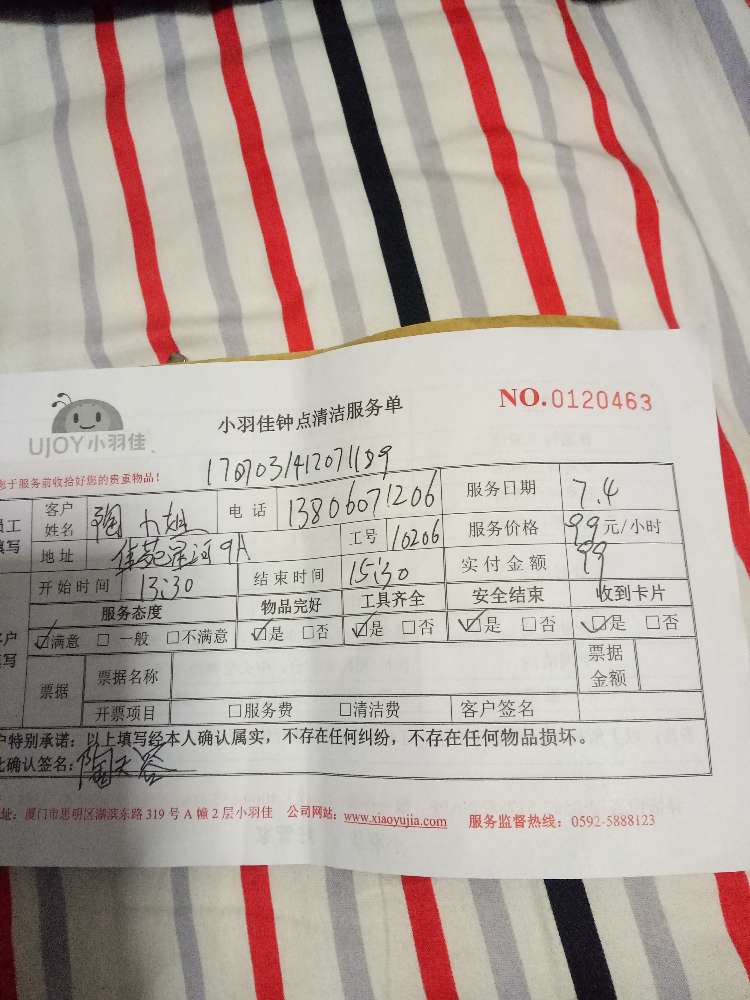 UJOY小羽佳
小羽佳钟点清洁服务单
NO.0120463
您于服务前收拾好您的贵重物品！
1707031412071189
员工
填写
客户
姓名
陶小姐
电话
13806071206
服务日期
7.4
地址
9A
工号
10206
服务价格
99元/小时
开始时间
13:30
结束时间
15:30
实付金额
99
服务态度 物品完好 工具齐全 安全结束 收到卡片
客户
填写
☑满意 □一般 □不满意 ☑是 □否 ☑是 □否 ☑是 □否 ☑是 □否
票据
票据名称
票据
金额
开票项目 □服务费 □清洁费 客户签名
户特别承诺：以上填写经本人确认属实，不存在任何纠纷，不存在任何物品损坏。
此确认签名：
址：厦门市思明区湖滨东路 319 号 A 幢 2 层小羽佳 公司网站：www.xiaoyujia.com 服务监督热线：0592-5888123